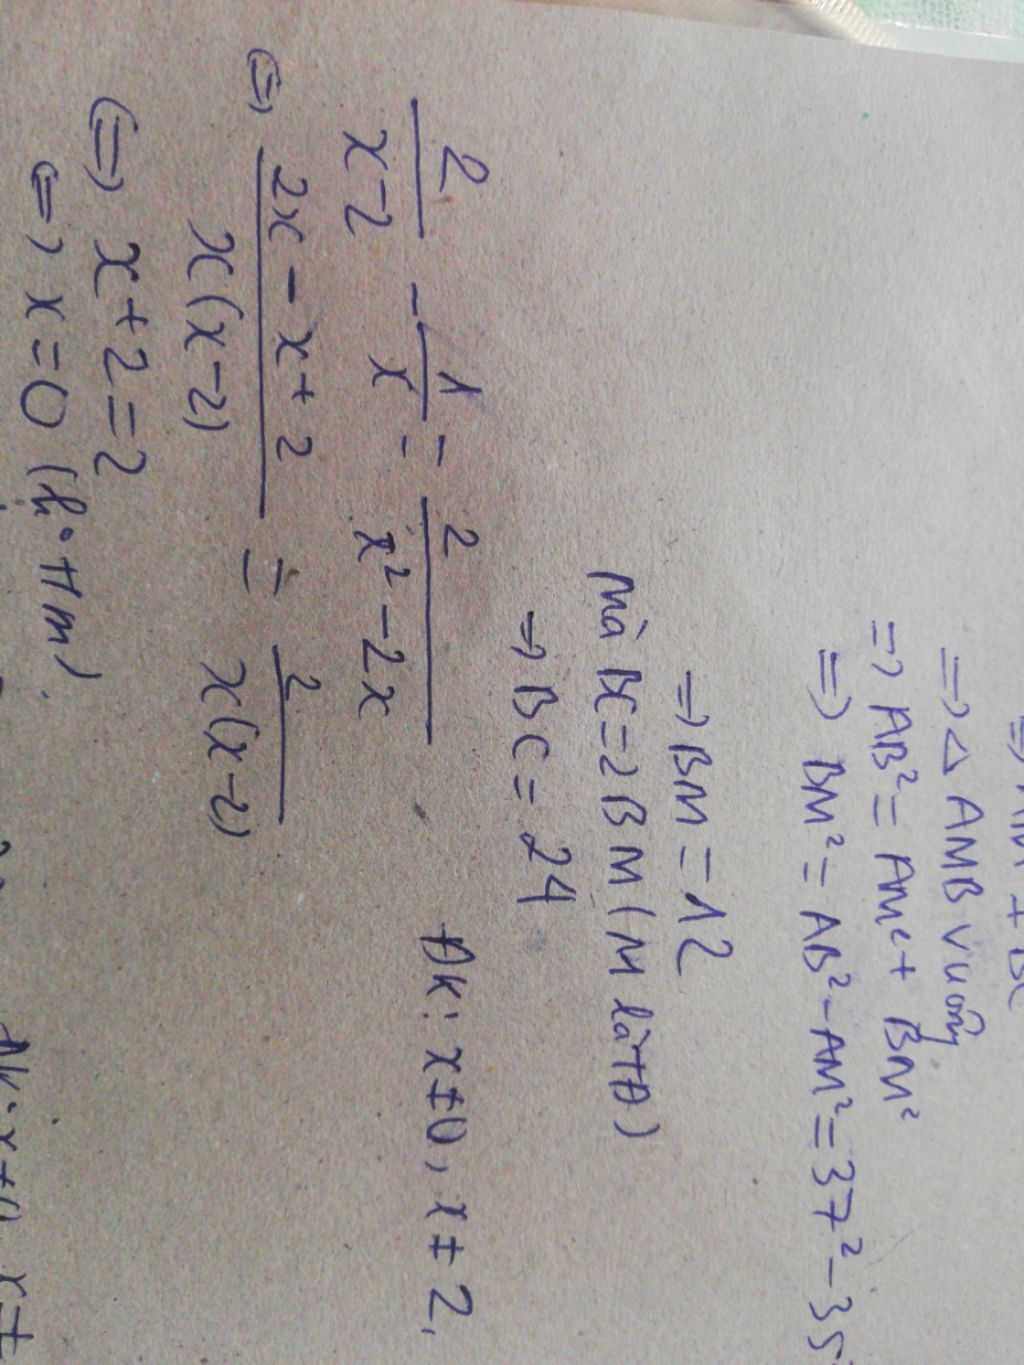 ⇒ △ AMB vuông
⇒ AB² = AM² + BM²
⇒ BM² = AB² - AM² = 37² - 35
⇒ BM = 12
mà BC = 2BM (M là TĐ)
⇒ BC = 24
2/(x-2) - 1/x = 2/(x²-2x) ĐK: x≠0, x≠2.
⇔ (2x - x + 2)/(x(x-2)) = 2/(x(x-2))
⇔ x + 2 = 2
⇔ x = 0 (